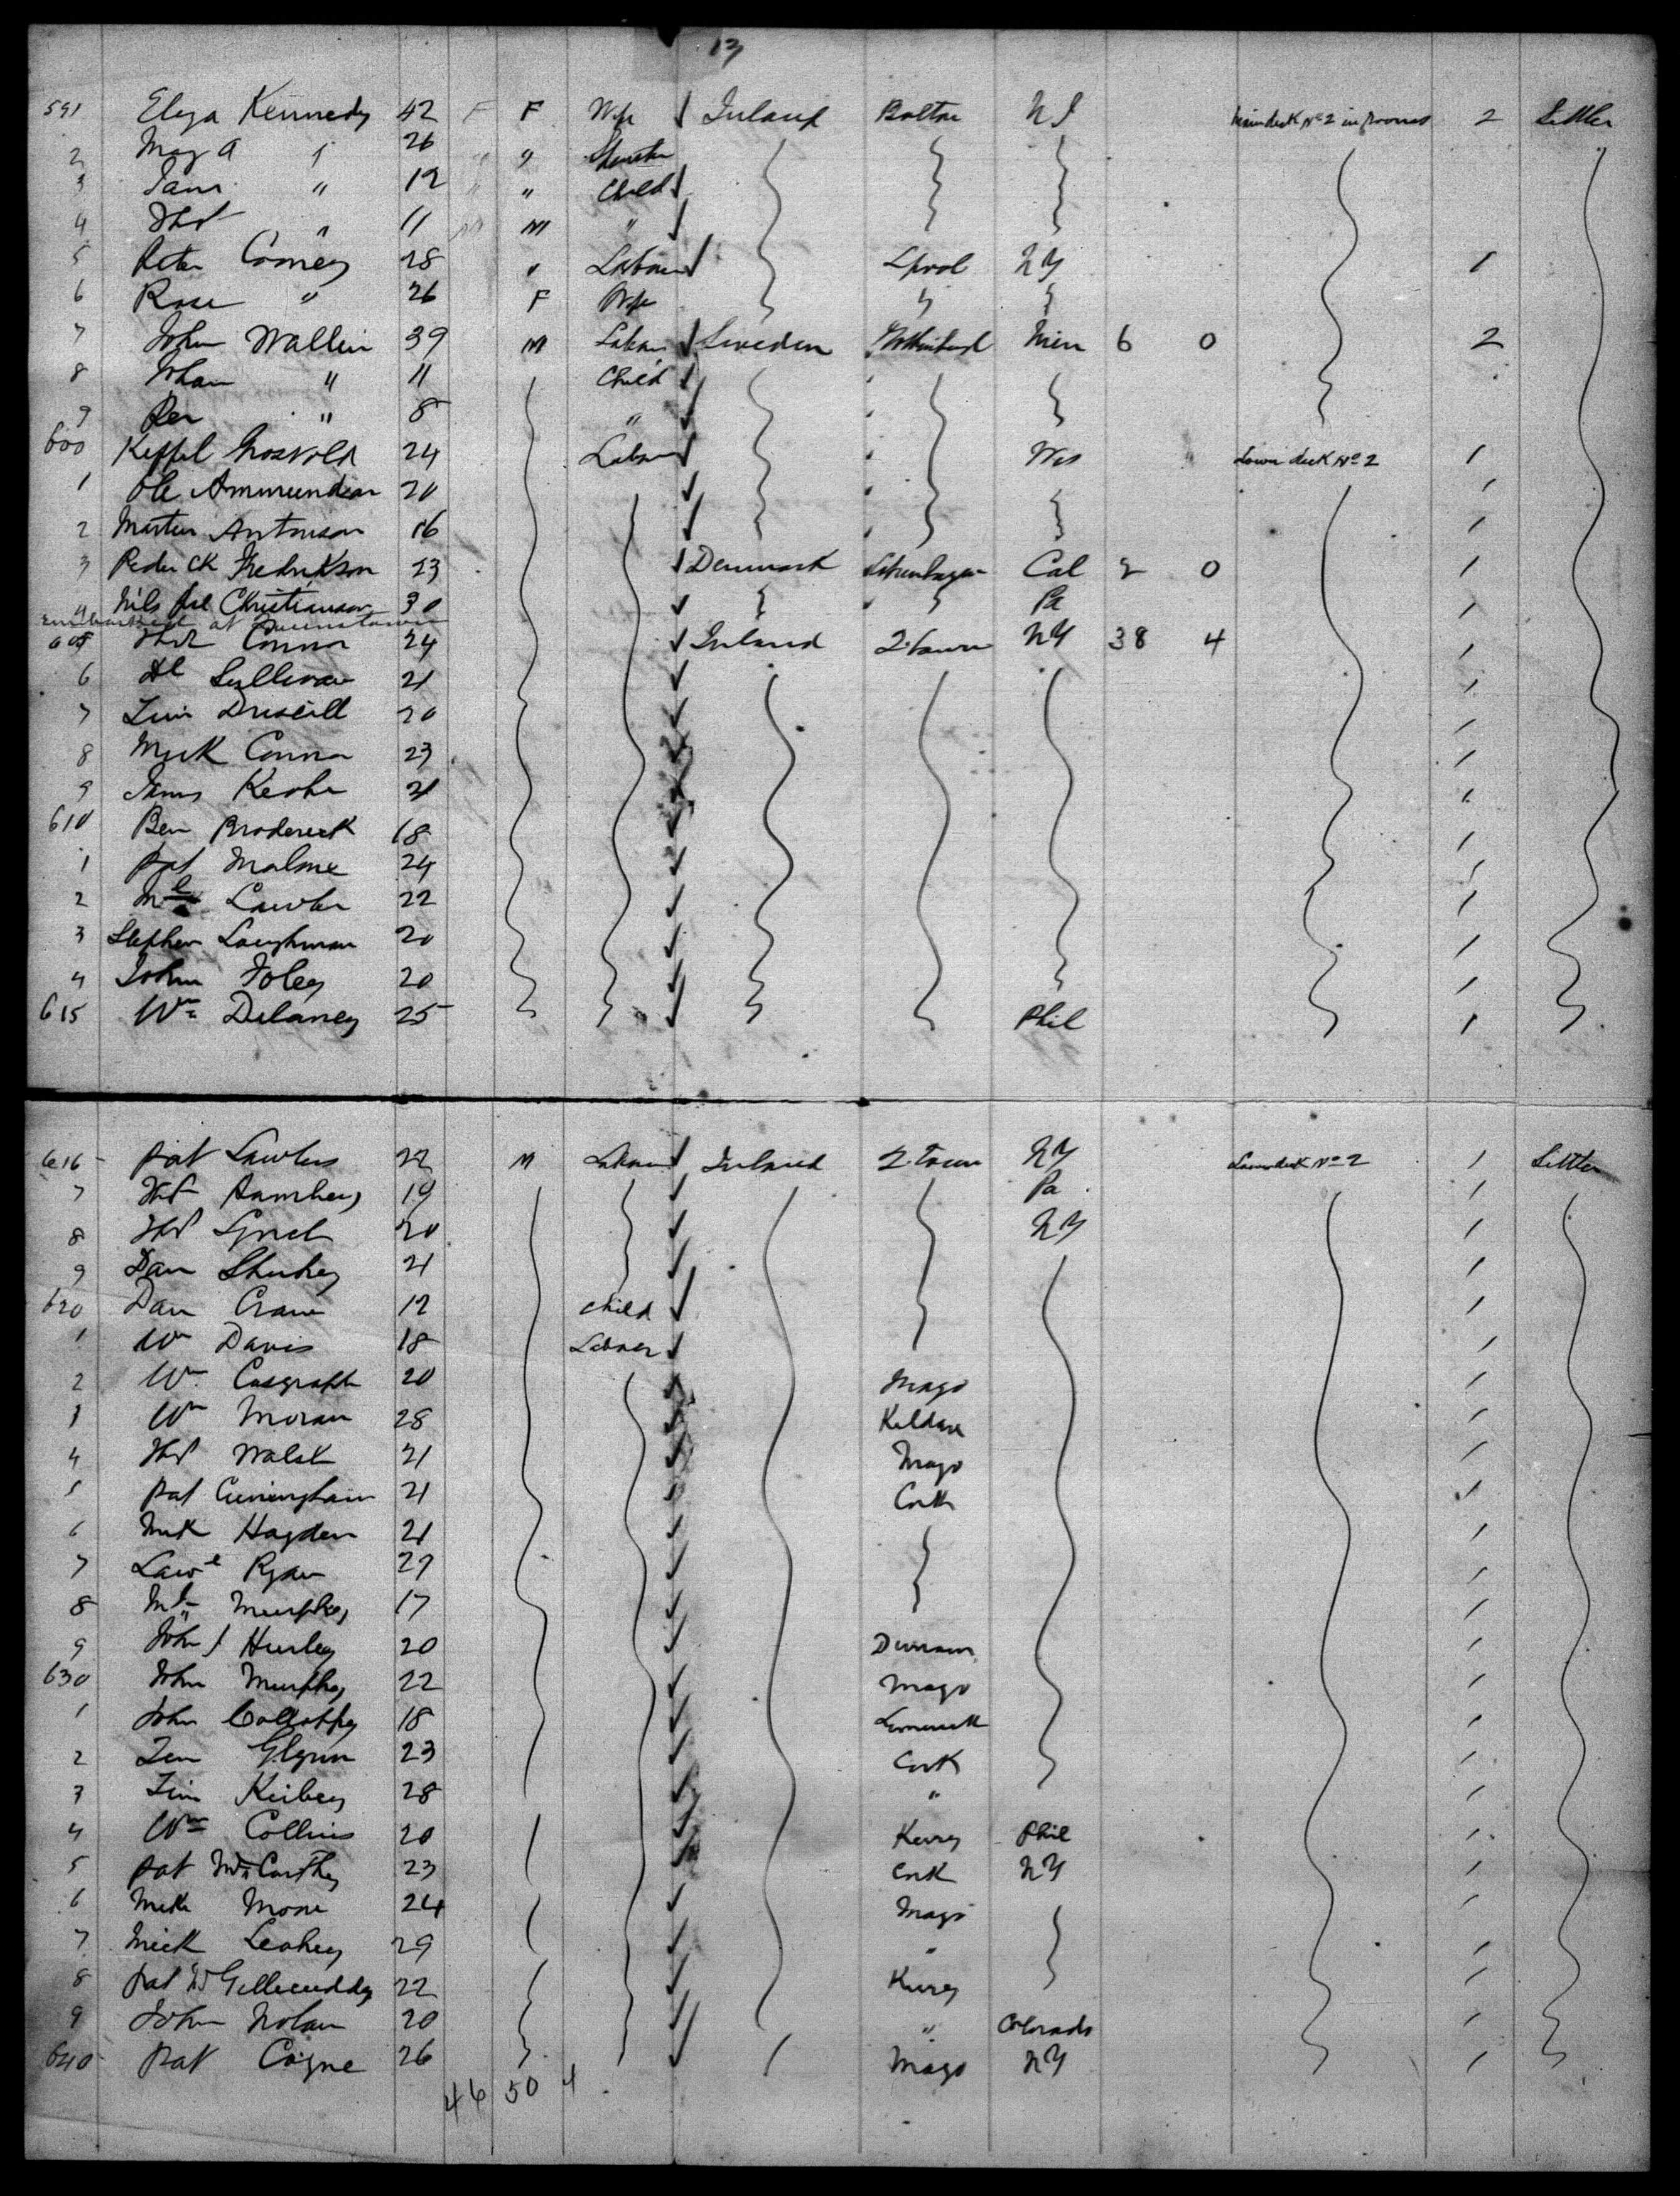 13
591 Eliza Kennedy 42 F F Wife Ireland Bolton NJ Main deck No 2 in rooms 2 Settler
2 May A " 26 " " Spinster
3 Jane " 12 " " Child
4 Thos " 11 M M "
5 Peter Comey 28 " Labourer Lpool NY 1
6 Rose " 26 F Wife "
7 John Wallin 39 M Labour Sweden Gothenburg Min 6 0 2
8 Johan " 11 Child
9 Per " 8 "
600 Keppel 24 Labour Wis Lower deck No 2 1
1 Ole Ammundson 20 1
2 Martin Antonson 16 1
3 Rederick Fredrikson 23 Denmark Copenhagen Cal 2 0 1
4 Nils Christianson 30 Pa 1
embarked at Queenstown
605 Thos Connor 24 Ireland Qtown NY 38 4 1
6 Dl Sullivan 21 1
7 Tim Driscill 20 1
8 Mick Connor 23 1
9 James Keohe 21 1
610 Ben Broderick 18 1
1 Pat Malone 24 1
2 Ml Lawler 22 1
3 Stephen Loughman 20 1
4 John Foley 20 1
615 Wm Delaney 25 Phil 1
616 Pat Lawlus 22 M Labour Ireland Q.town NY Lower deck No 2 1 Settler
7 Thos 19 Pa 1
8 Thos Lynch 20 NY 1
9 Dan Sheehey 21 1
620 Dan Crane 12 Child 1
1 Wm Davis 18 Labourer 1
2 Wm 20 Mayo 1
3 Wm Moran 28 Kildare 1
4 Thos Walsh 21 Mayo 1
5 Pat Cuningham 21 Cork 1
6 Mick Hayden 21 1
7 Lawe Ryan 29 1
8 Murphy 17 1
9 John J Hurley 20 1
630 John Murphy 22 Mayo 1
1 John 18 Limerick 1
2 Glynn 23 Cork 1
3 Tim Kirbey 28 " 1
4 Wm Collins 20 Kerry Phil 1
5 Pat McCarthy 23 Cork NY 1
6 Mick Mone 24 Mayo 1
7 Mick Leahey 29 " 1
8 Pat McGillicuddy 22 Kerry 1
9 John Nolan 20 " Colorado 1
640 Pat Coyne 26 Mayo NY 1
46 50 4